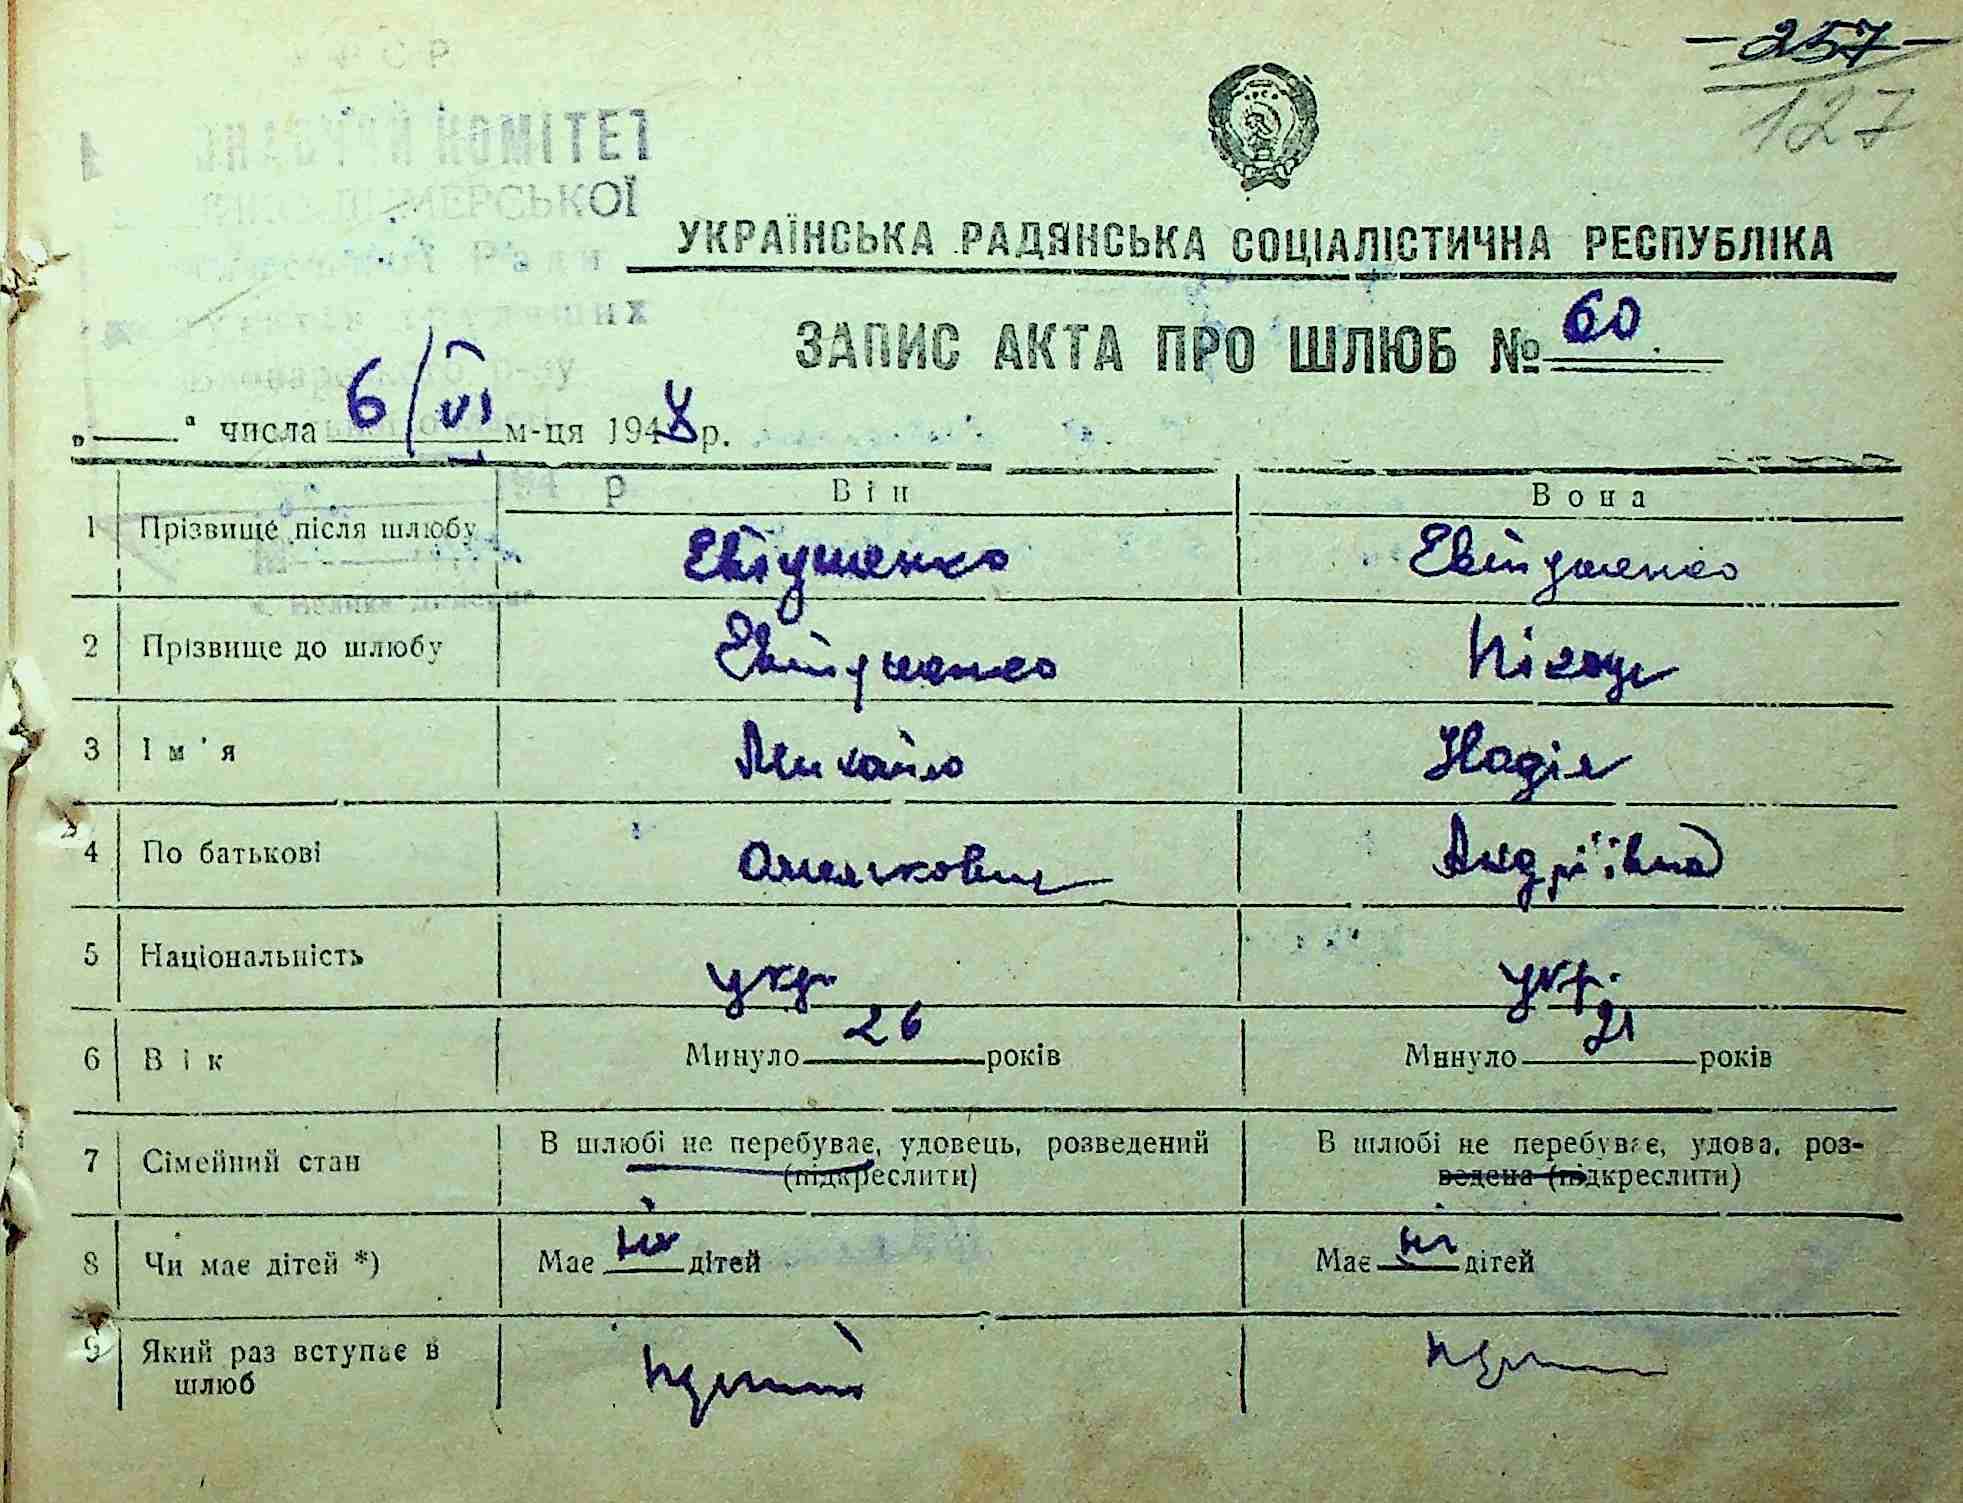 257
127
КОМІТЕТ
УКРАЇНСЬКА РАДЯНСЬКА СОЦІАЛІСТИЧНА РЕСПУБЛІКА
ЗАПИС АКТА ПРО ШЛЮБ № 60
„ “ числа 6/VI м-ця 1948 р.
Він Вона
1 Прізвище після шлюбу Евтушенко Евтушенко
2 Прізвище до шлюбу Евтушенко
3 Ім'я Михайло Надія
4 По батькові Омелькович Андріївна
5 Національність укр. укр.
6 Вік Минуло 26 років Минуло 21 років
7 Сімейний стан В шлюбі не перебуває, удовець, розведений (підкреслити) В шлюбі не перебуває, удова, роз-
ведена (підкреслити)
8 Чи має дітей *) Має дітей Має ні дітей
9 Який раз вступає в
шлюб